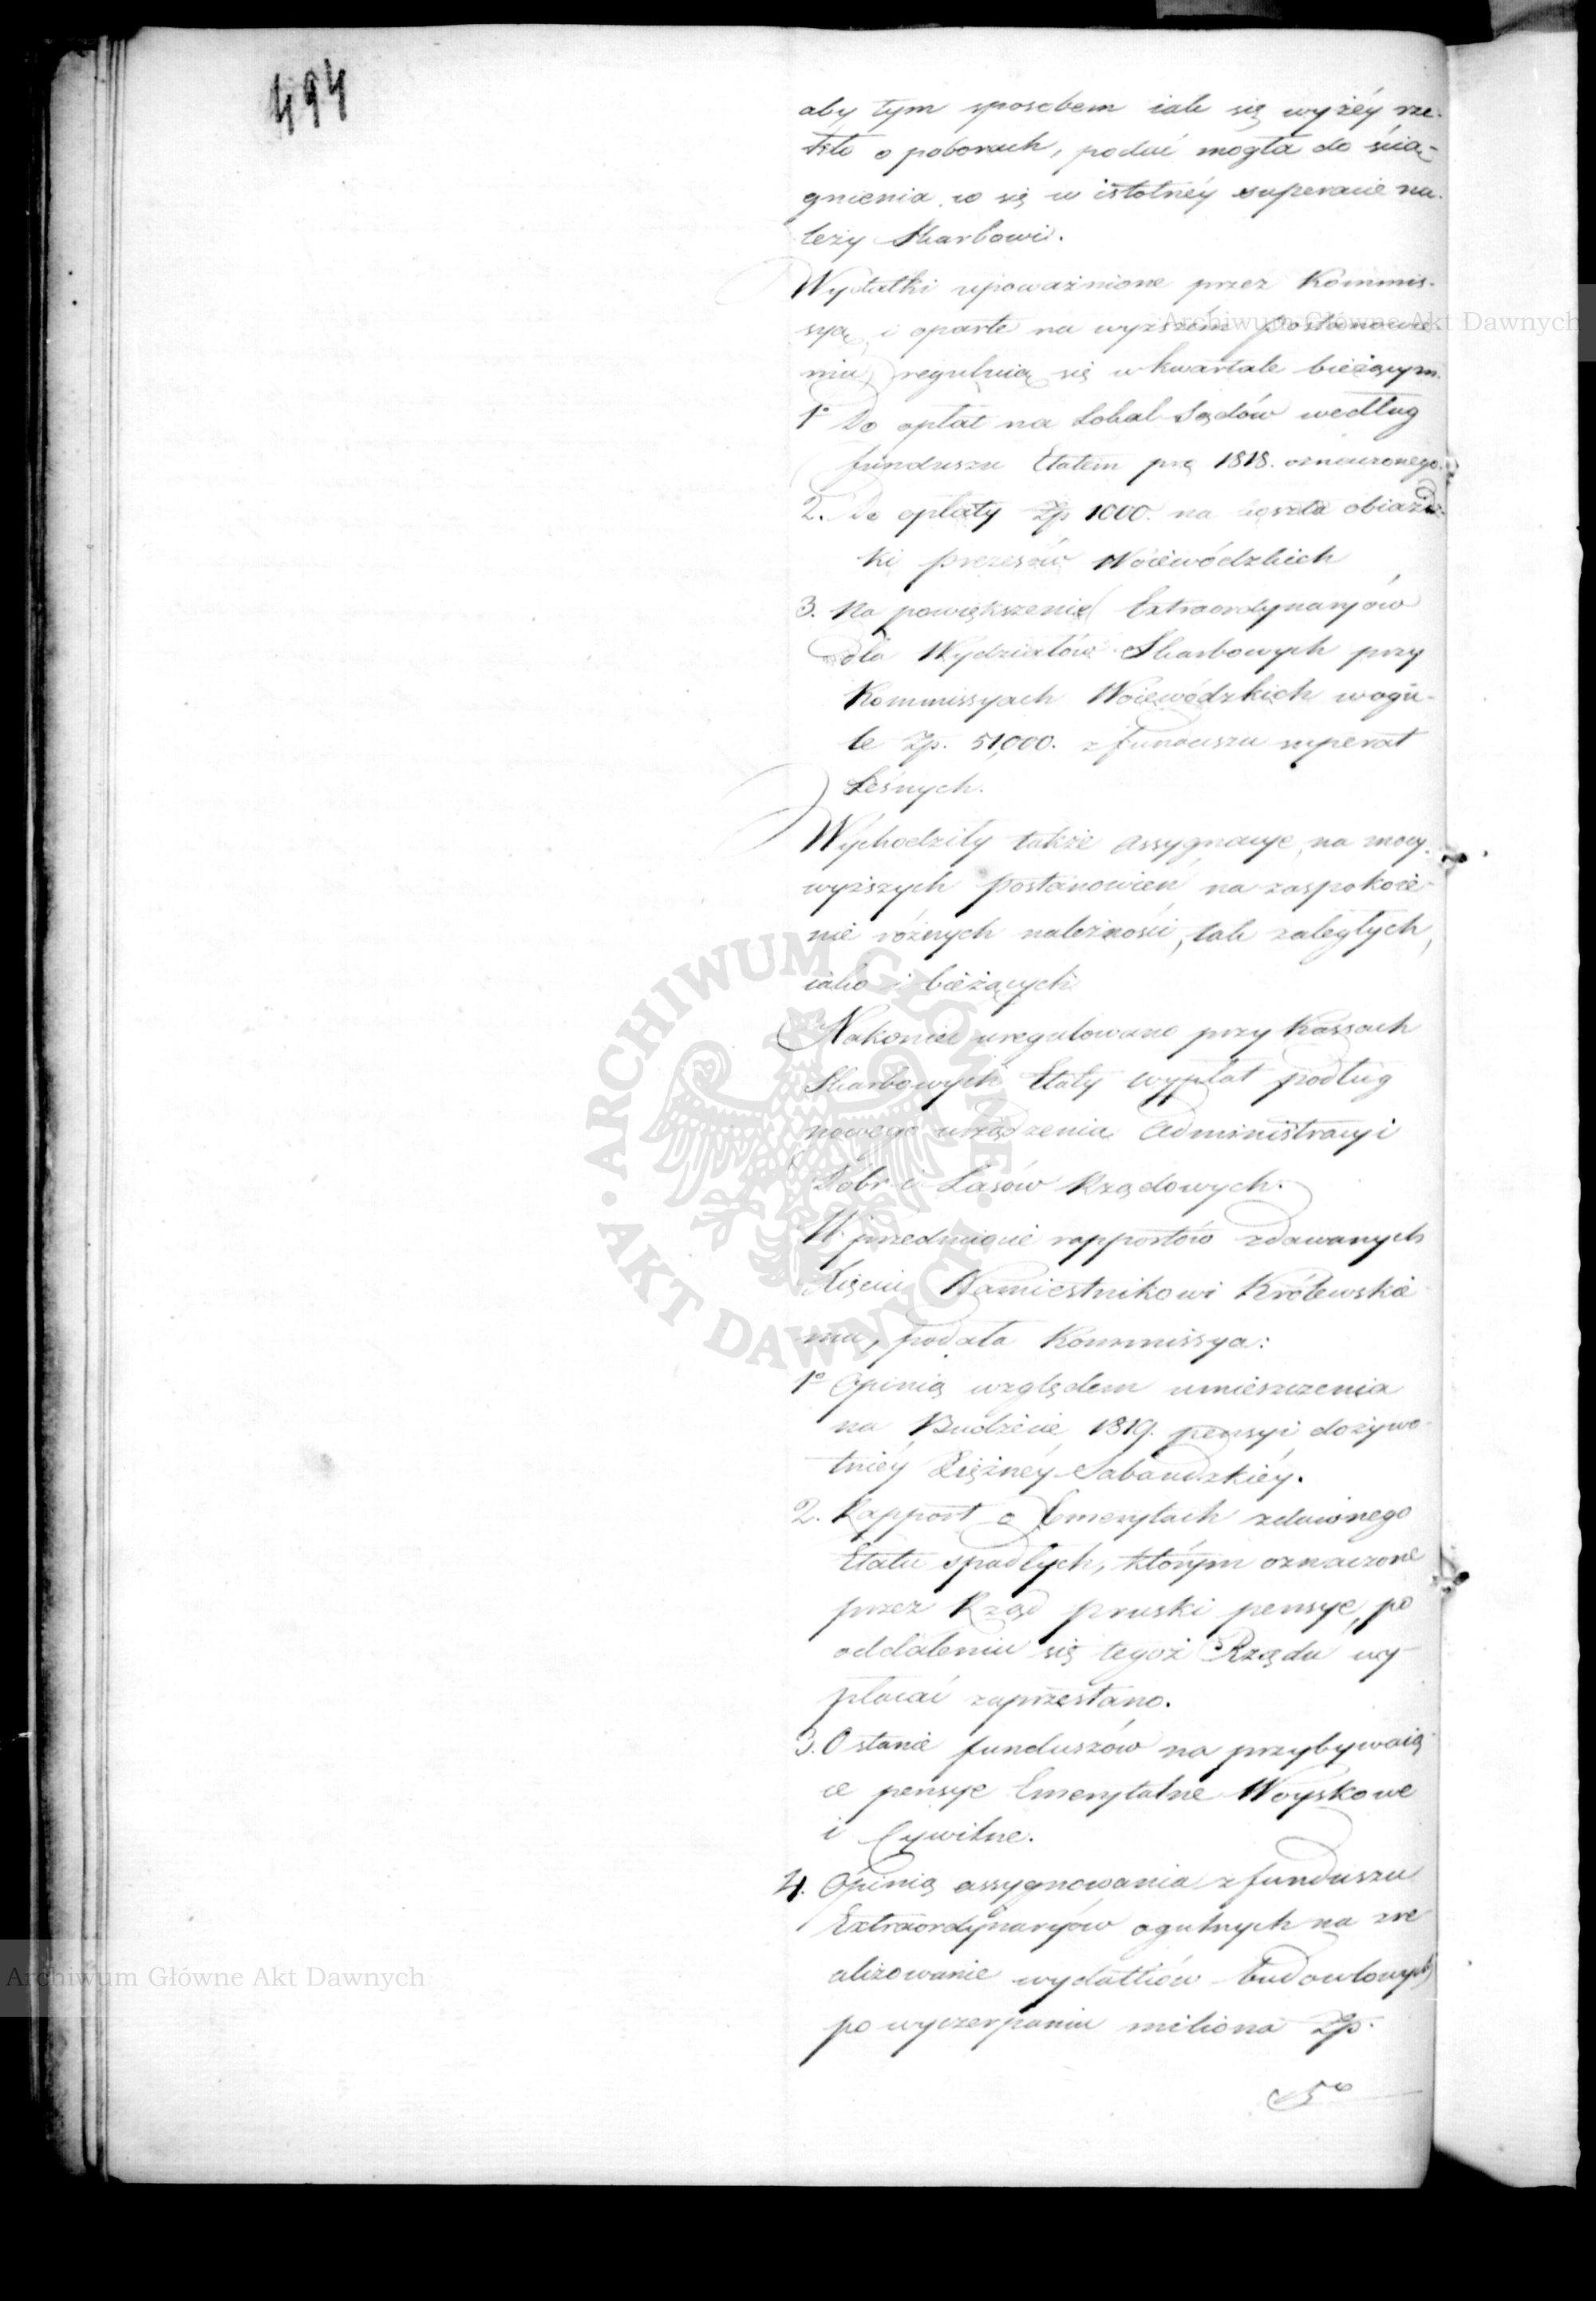 494
aby tym sposobem iak się wyżéy rze-
kło o poborach, podać mogła do ścią-
gnienia co się w istotnéy superacie na-
leży Skarbowi.
Wydatki upoważnione przez Kommis-
syą, i oparte na wyższém postanowie-
niu, regulują się w kwartale bieżącym.
1° Do opłat na Lokal Sądów według
funduszu Etatem prą 1818. oznaczonego.
2. Do opłaty Zp 1000. na koszta obiazd-
ki prezesów Woiewódzkich
3. Na powiększenie Extraordynaryów
dla Wydziałów Skarbowych przy
Kommissyach Woiewódzkich wogu-
le Zp. 51,000. z funduszu superat
Leśnych.
Wychodziły także assygnacye, na mocy
wyższych postanowień, na zaspokoie-
nie różnych należności, tak zaległych,
iako i bieżących
Nakoniec uregulowano przy Kassach
Skarbowych Etaty wypłat podług
nowego urządzenia Administracyi
Dóbr i Lasów Rządowych.
W przedmiocie rapportów zdawanych
Xięciu Namiestnikowi Królewskie-
mu, podała Kommissya:
1° Opinią względem umieszczenia
na Budżecie 1819. pensyi dożywo-
tniéy Xiężnéy Sabaudzkiéy.
2. Rapport o Emerytach zdawnego
Etatu spadłych, którym oznaczone
przez Rząd pruski pensye, po
oddaleniu się tegoż Rządu wy-
płacać zaprzestano.
3. O stanie funduszów na przybywaią-
ce pensye Emerytalne Woyskowe
i Cywilne.
4. Opinią assygnowania z funduszu
Extraordynaryów ogulnych na zre-
alizowanie wydatków budowlowych
po wyczerpaniu miliona Zp.
5°
Archiwum Główne Akt Dawnych
Archiwum Główne Akt Dawnych
ARCHIWUM GŁÓWNE AKT DAWNYCH